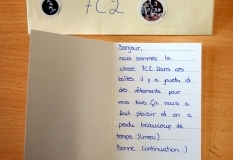 7C2
Bonjour,
nous sommes la
classe 7C2. Dans ces
boîtes il y a jouets et
des vêtements pour
vous tous. Ça nous a
fait plaisir et on a
perdu beaucoup de
temps :)(merci)
Bonne continuation :)